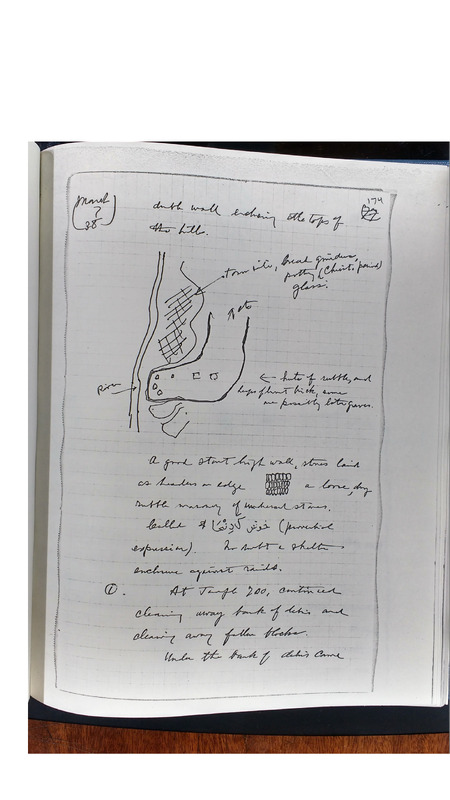 March
7
38
174
double wall enclosing the tops of
the hills.
town site, bread grinders,
pottery (Christ. period)
glass.
river
← huts of rubble, and
heaps of burnt brick, some
are possibly late graves.
A good stout high wall, stones laid
as headers on edge a loose, dry
rubble masonry of unhewn stones.
Called
expression). No doubt a shelter
enclosure against raids.
①. At Temple 200, continued
clearing away bank of debris and
clearing away fallen blocks.
Under the bank of debris came